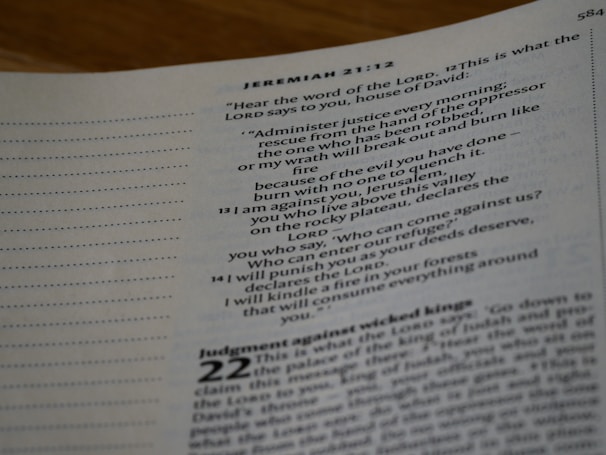 584
JEREMIAH 21:12
“Hear the word of the LORD. 12This is what the
LORD says to you, house of David:
‘ “Administer justice every morning;
rescue from the hand of the oppressor
the one who has been robbed,
or my wrath will break out and burn like
fire
because of the evil you have done –
burn with no one to quench it.
13 I am against you, Jerusalem,
you who live above this valley
on the rocky plateau, declares the
LORD –
you who say, ‘Who can come against us?
Who can enter our refuge?’
14 I will punish you as your deeds deserve,
declares the LORD.
I will kindle a fire in your forests
that will consume everything around
you.” ’
Judgment against wicked kings
22 This is what the LORD says: ‘Go down to
the palace of the king of Judah and pro-
claim this message there: 2 “Hear the word of
the LORD to you, king of Judah, you who sit on
David's throne – you, your officials and your
people who come through these gates. 3 This is
what the LORD says: do what is just and right.